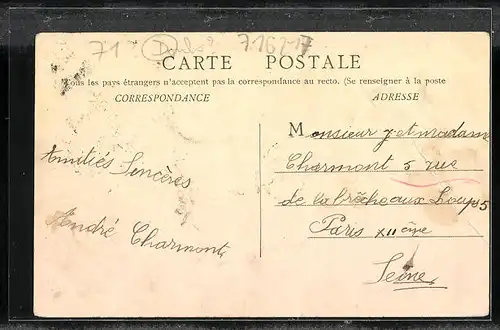 71 Doubs 71621-7
CARTE POSTALE
Tous les pays étrangers n'acceptent pas la correspondance au recto. (Se renseigner à la poste
CORRESPONDANCE
ADRESSE
Amitiés Sincères
André Charmont
Monsieur et madame
Charmont 5 rue
de la brêche aux Loups 5
Paris XII ème
Seine.